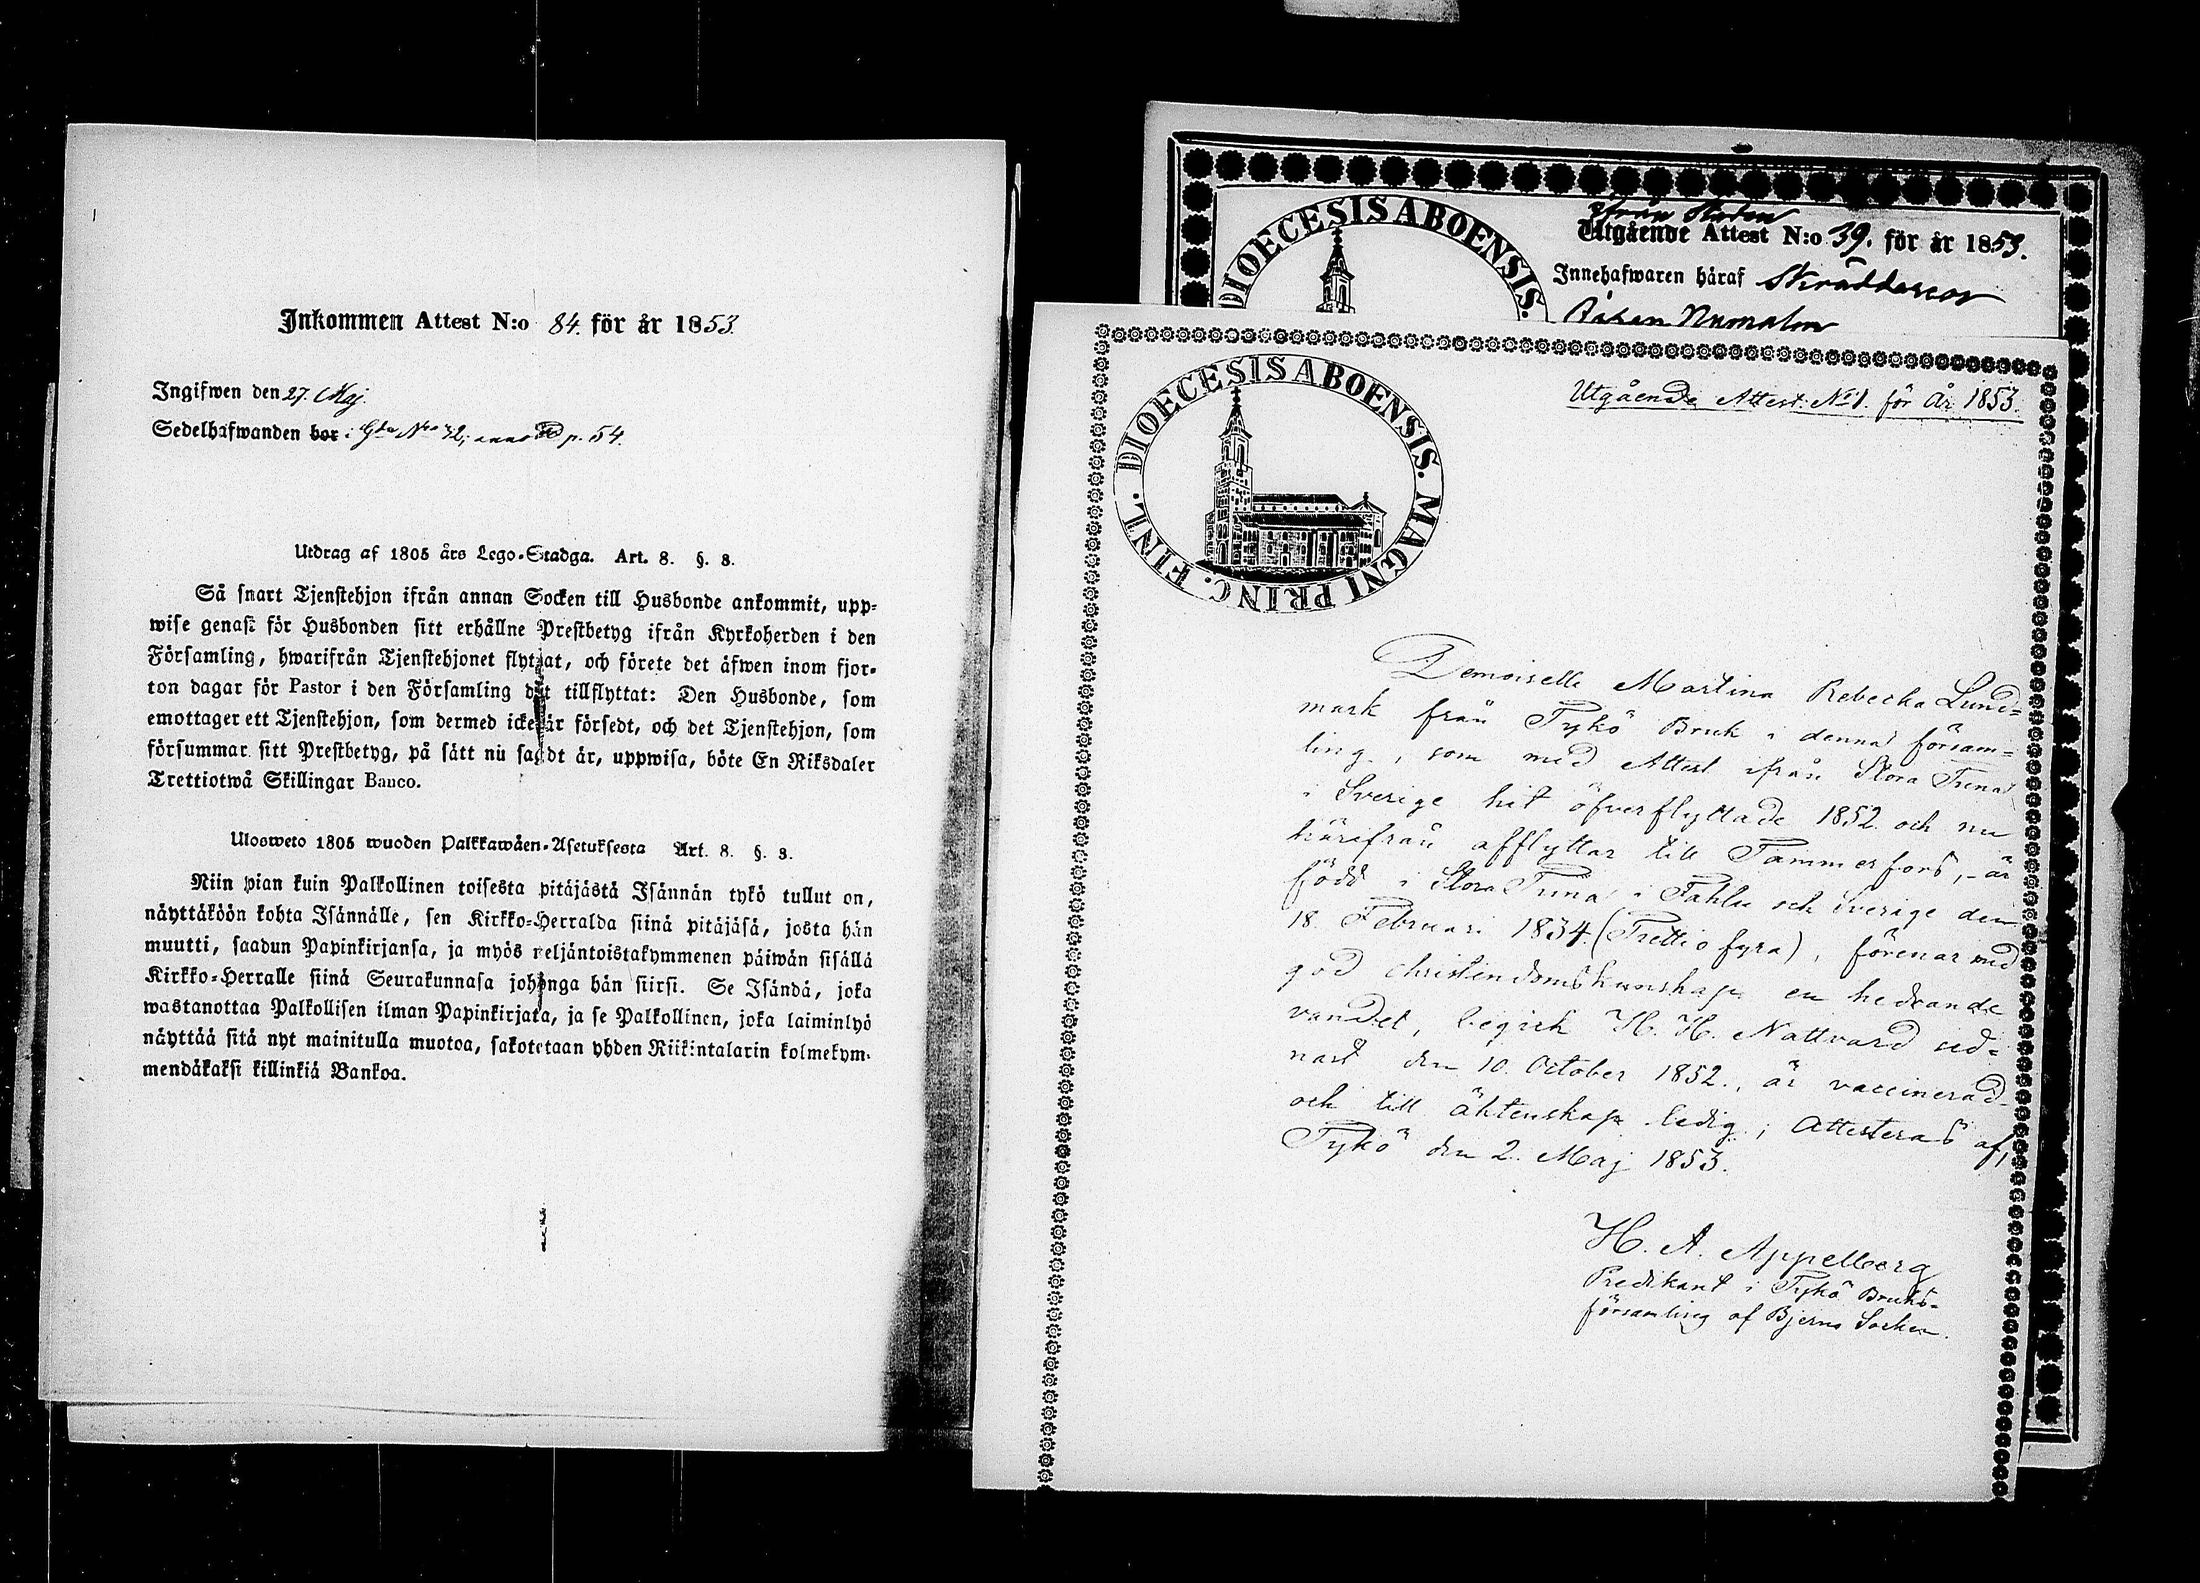 Inkommen Attest N:o 84. för år 1853.
Ingifwen den 27. Maj.
Sedelhafwanden bor i Gdn No 32, p. 54.
Utdrag af 1805 års Lego-Stadga. Art. 8. §. 3.
Så snart Tjenstehjon ifrån annan Socken till Husbonde ankommit, upp-
wise genast för Husbonden sitt erhållne Prestbetyg ifrån Kyrkoherden i den
Församling, hwarifrån Tjenstehjonet flyttat, och förete det äfwen inom fjor-
ton dagar för Pastor i den Församling det tillflyttat: Den Husbonde, som
emottager ett Tjenstehjon, som dermed icke är försedt, och det Tjenstehjon, som
försummar sitt Prestbetyg, på sätt nu sagdt är, uppwisa, böte En Riksdaler
Trettiotwå Skillingar Banco.
Ulosweto 1805 wuoden Palkkawäen-Asetuksesta Art. 8. §. 3.
Niin pian kuin Palkollinen toisesta pitäjästä Isännän tykö tullut on,
näyttäköön kohta Isännälle, sen Kirkko-Herralda siinä pitäjäsä, josta hän
muutti, saadun Papinkirjansa, ja myös neljäntoistakymmenen päiwän sisällä
Kirkko-Herralle siinä Seurakunnasa johonga hän siirsi. Se Isändä, joka
wastanottaa Palkollisen ilman Papinkirjata, ja se Palkollinen, joka laiminlyö
näyttää sitä nyt mainitulla muotoa, sakotetaan yhden Riikintalarin kolmekym-
mendäkaksi killinkiä Bankoa.
DIOECESIS ABOENSIS.
ifrån Staden
Utgående Attest N:o 39. för år 1853.
Innehafwaren häraf Skräddareos
DIOECESIS ABOENSIS. MAGNI PRINC. FINL.
Utgående Attest No 1. för år 1853.
Demoiselle Martina Rebecka Lund-
mark från Tykö Bruk i denna försam-
ling, som med Attest ifrån Stora Tuna
i Sverige hit öfverflyttade 1852 och nu
härifrån afflyttar till Tammerfors, - är
född i Stora Tuna i Fahlu och Sverige den
18. Februari 1834. (Trettio fyra), förenar med
god christendomskunskap en hedrande
vandel, begick H. H. Nattvard sed-
nast den 10. October 1852., är vaccinerad
och till äktenskap ledig; Attesteras af,
Tykö den 2. Maj 1853.
H. A. Appelberg
Predikant i Tykö Bruks-
församling af Bjerno Socken.